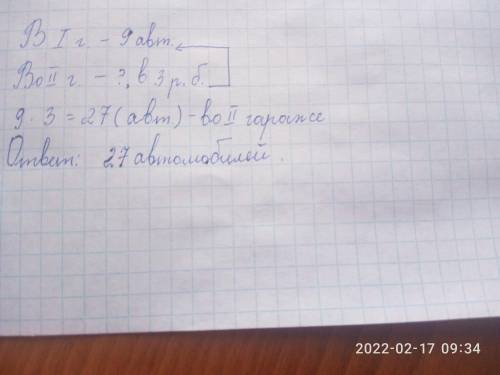 В I г. - 9 авт.
Во II г. - ?, в 3 р. б.
9 · 3 = 27 (авт) - во II гараже
Ответ: 27 автомобилей.
2022-02-17 09:34